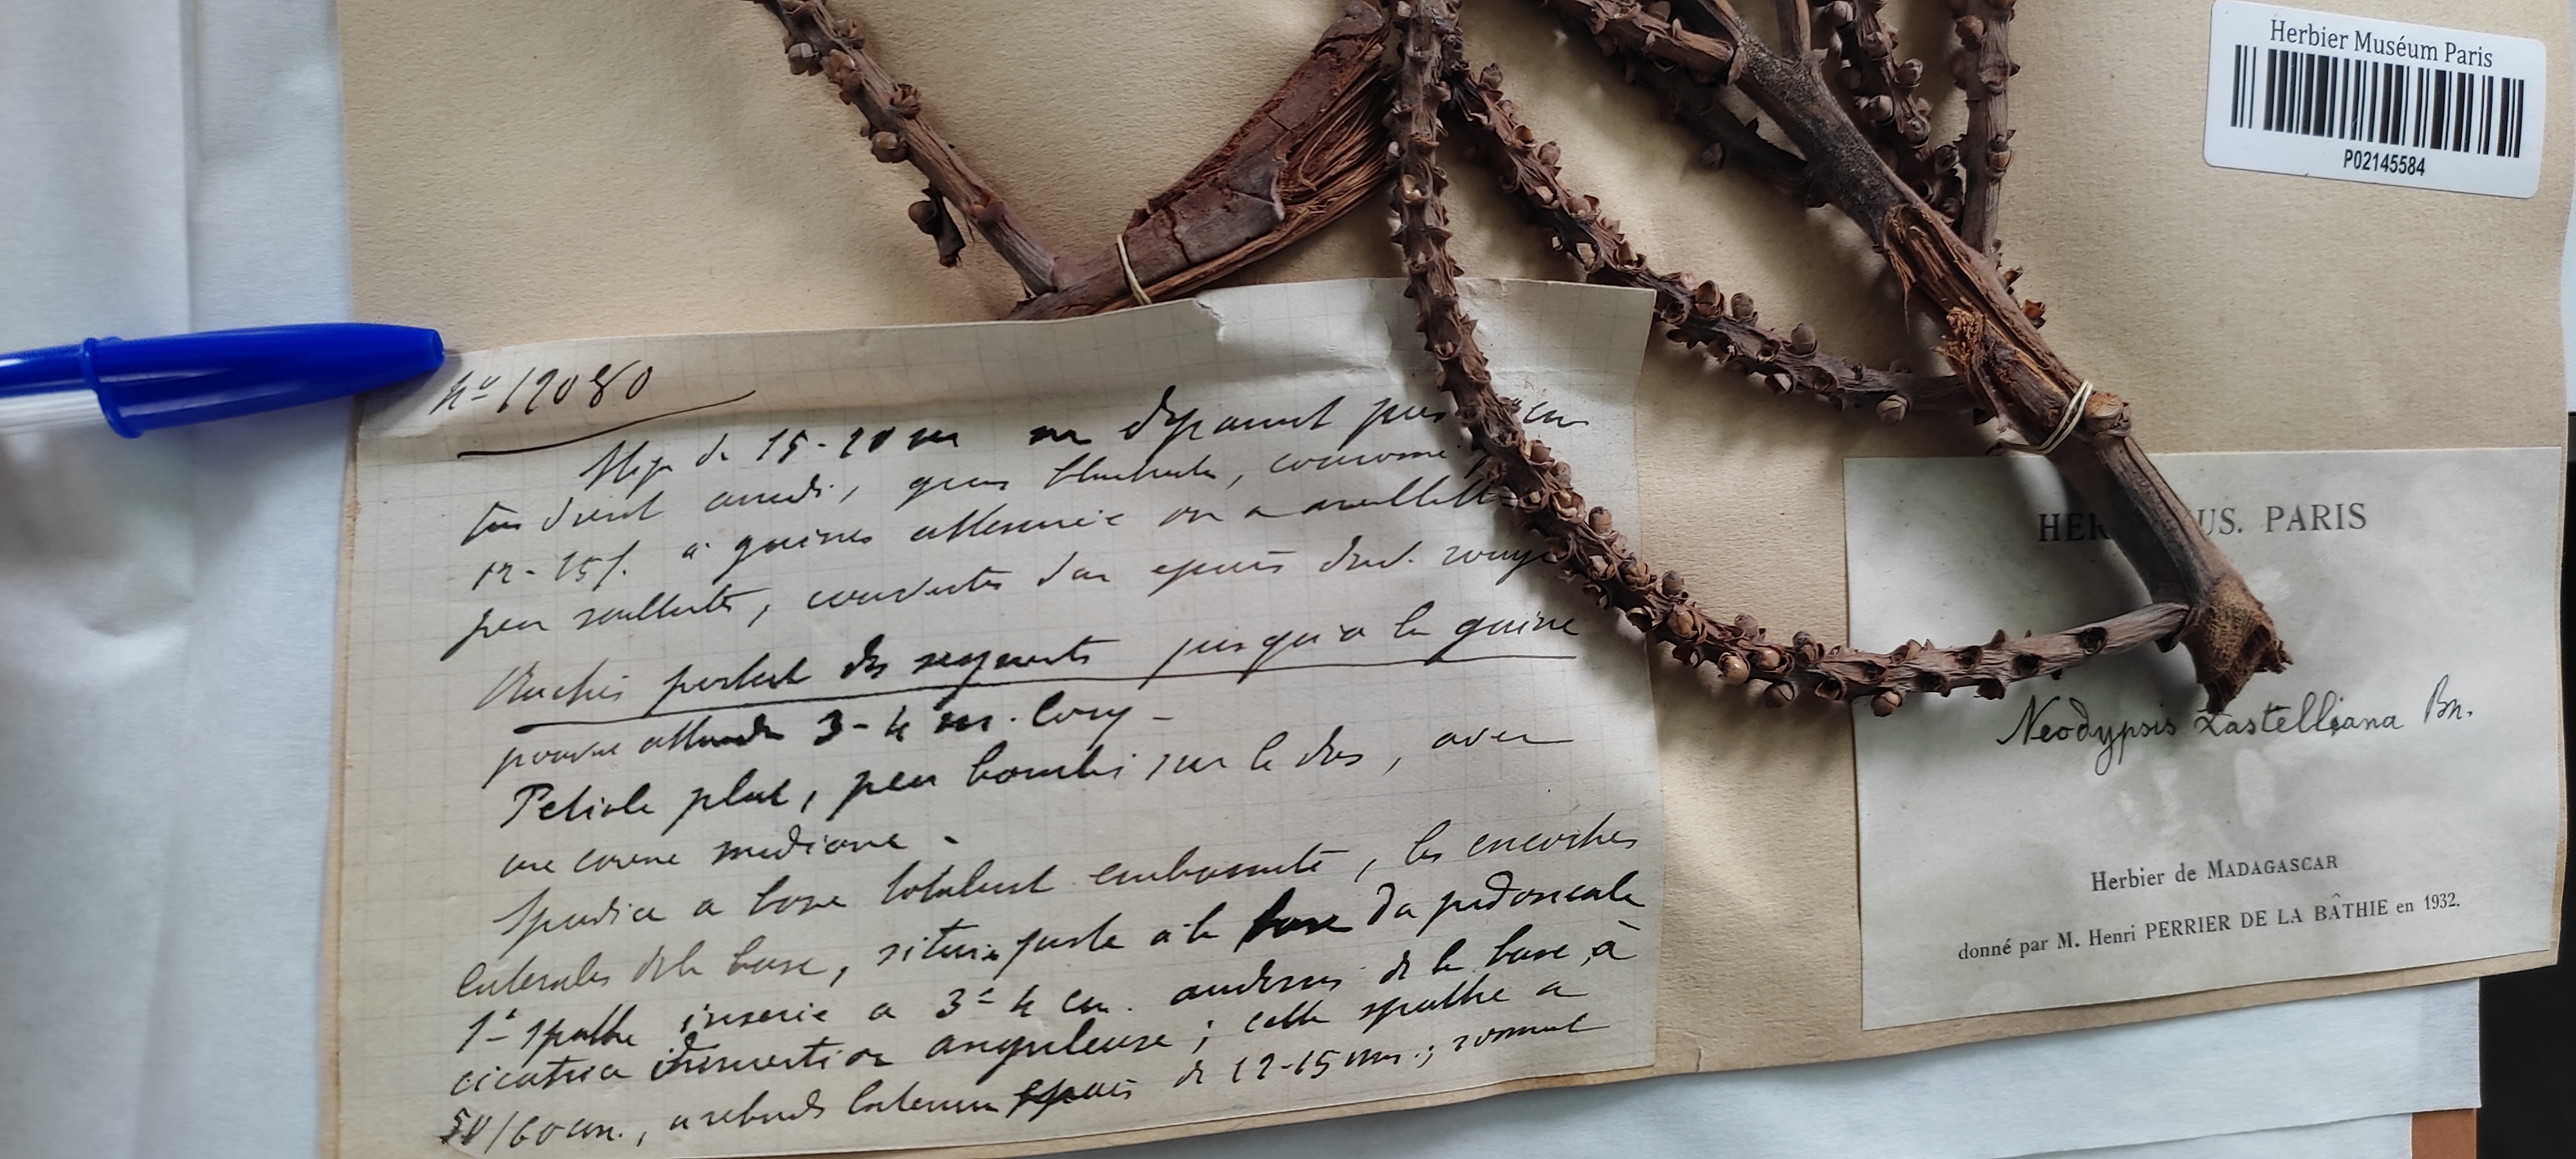 Herbier Muséum Paris
P02145584
nº 12080
Stipe de 15-20 m ne dépassant pas cm
de diam. gris blanchatre, couronne
12-15 f. à gaines attenuée en
peu saillants, couvertes d'un epais rouge
Rachis portant des segments jusqu'a la gaine
pouvant attendre 3-4 m. long -
Petiole plat, peu bombé sur le dos, avec
une carene mediane -
Spadice a base totalent embrassante, les encoches
laterales de la base, située juste à la base du pedoncule
1e spathe inserée a 3 à 4 cm. audessus de la base, à
cicatrice d'insertion anguleuse ; cette spathe a
50/60 cm., a rebords lateraux epais de 12-15 mm. ;
HER US. PARIS
Neodypsis Bn.
Herbier de MADAGASCAR
donné par M. Henri PERRIER DE LA BÂTHIE en 1932.